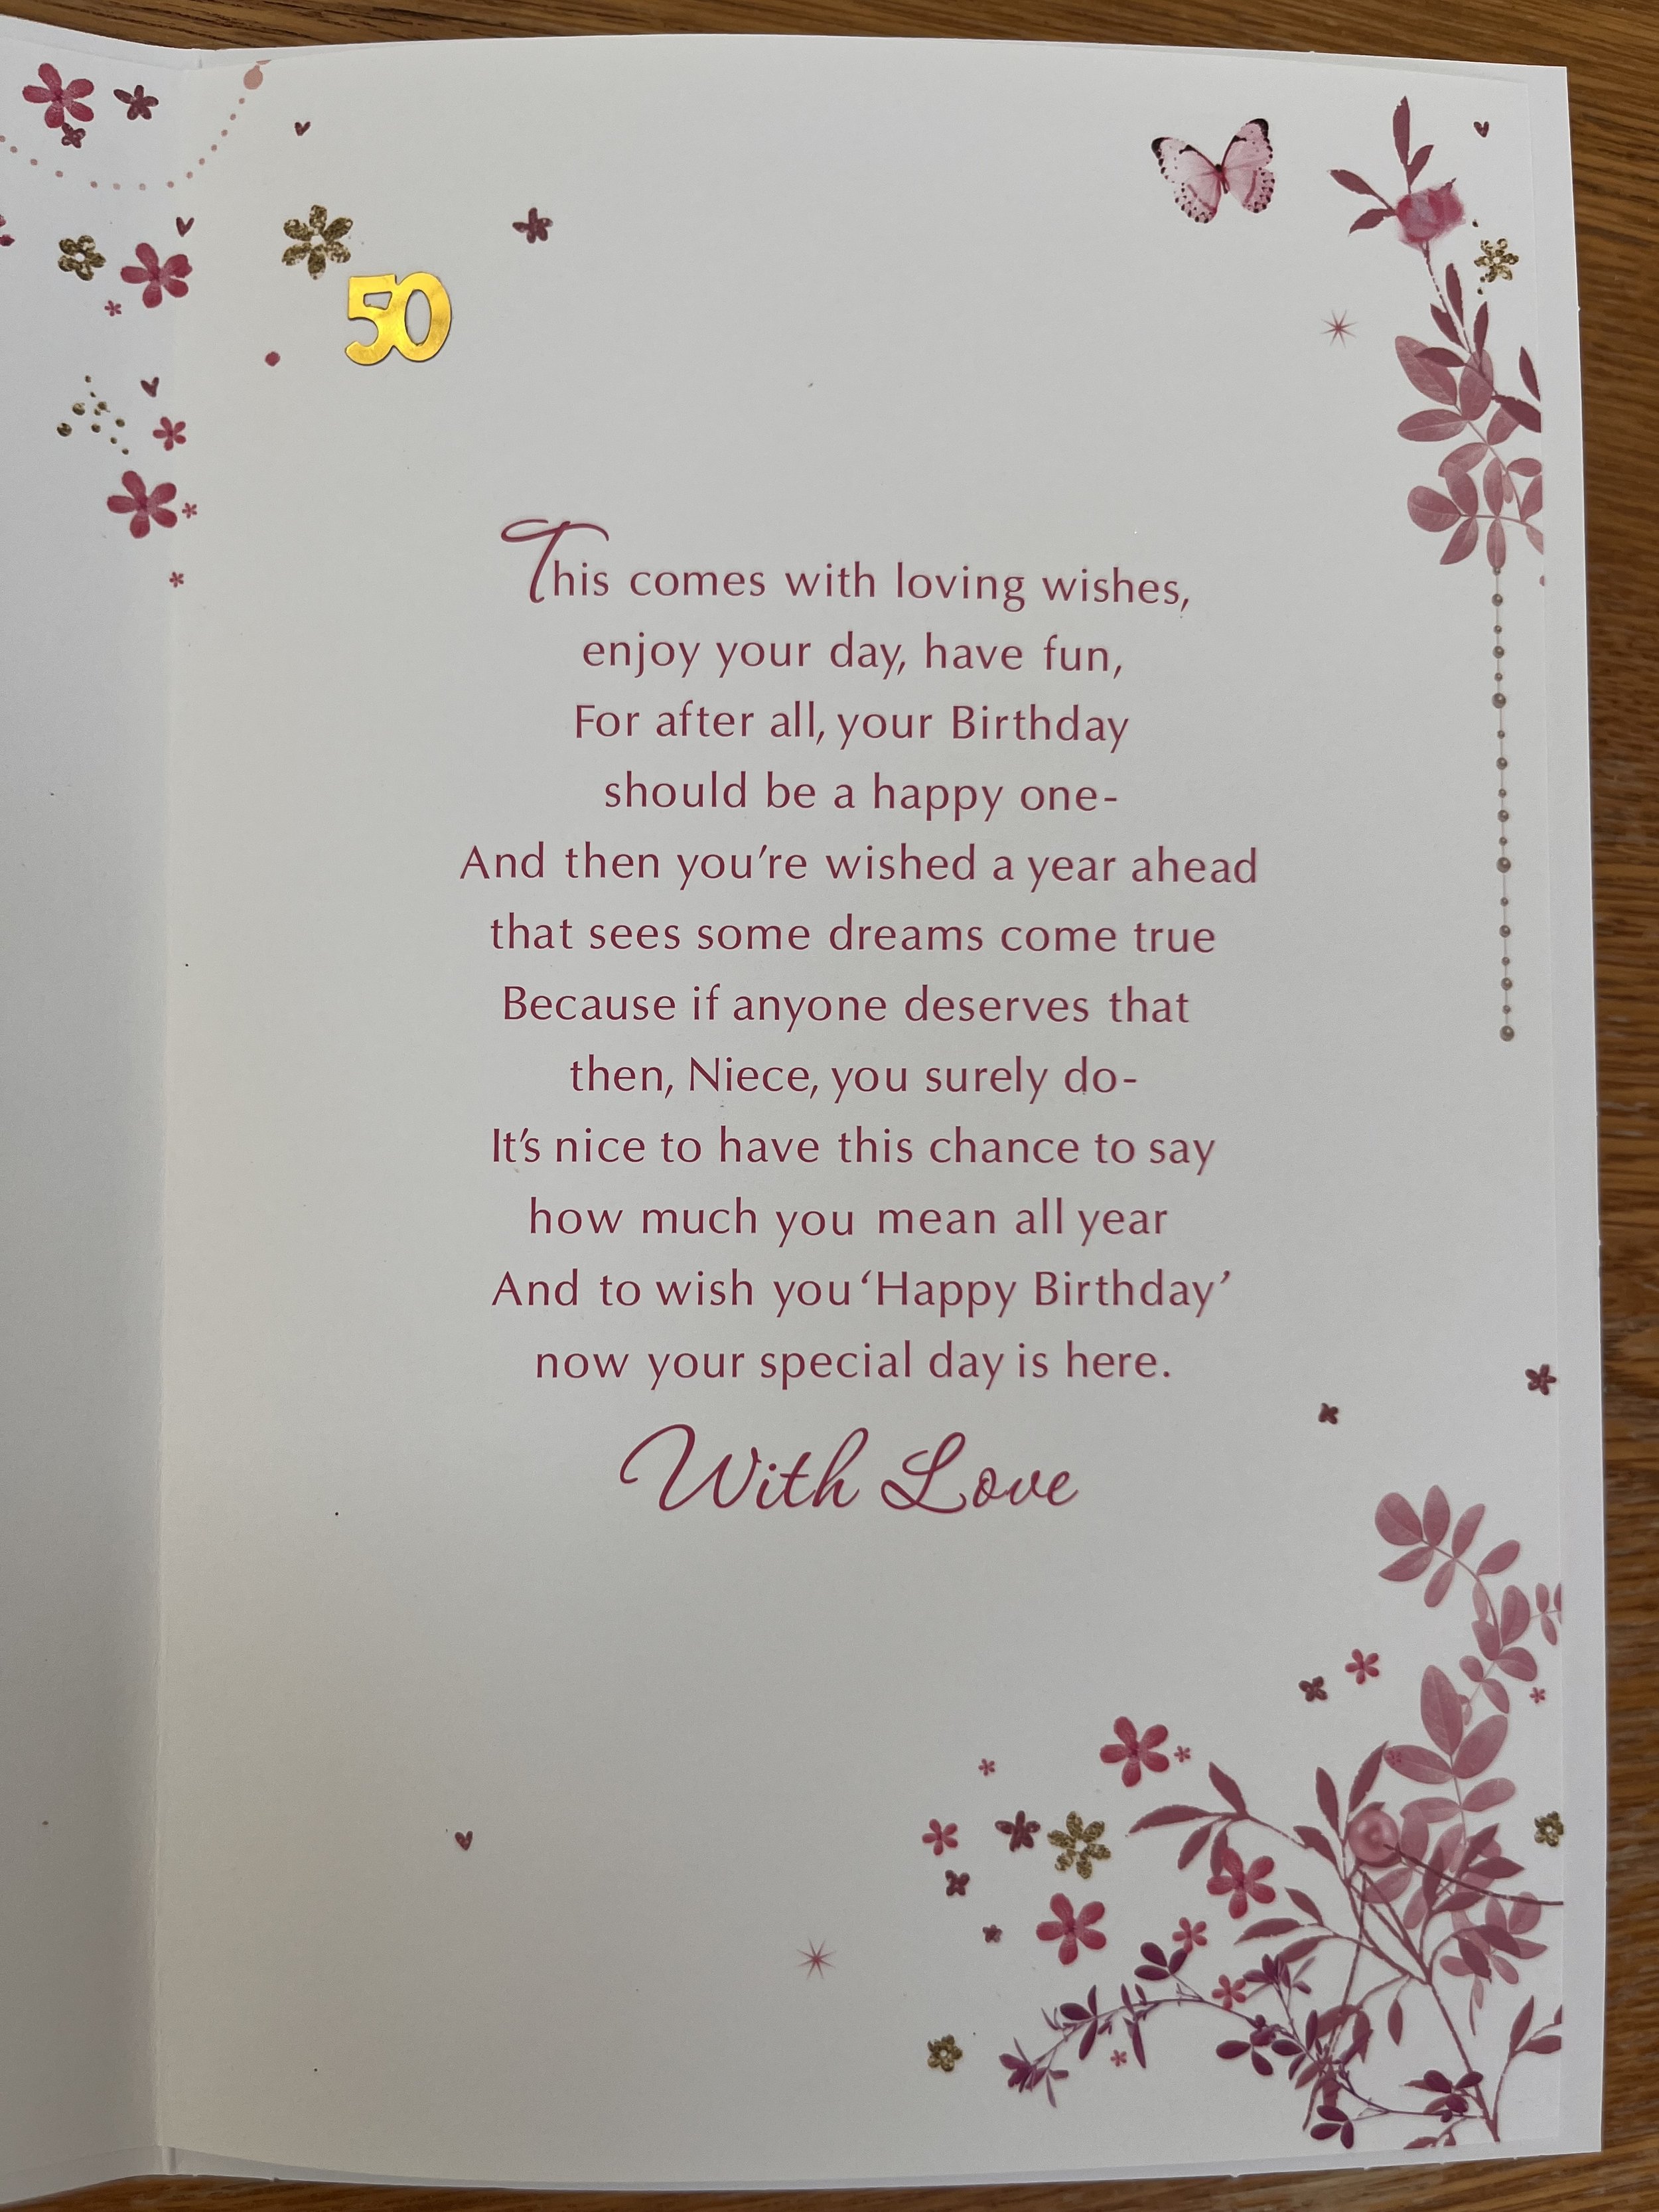 50
This comes with loving wishes,
enjoy your day, have fun,
For after all, your Birthday
should be a happy one-
And then you're wished a year ahead
that sees some dreams come true
Because if anyone deserves that
then, Niece, you surely do-
It's nice to have this chance to say
how much you mean all year
And to wish you ‘Happy Birthday’
now your special day is here.
With Love